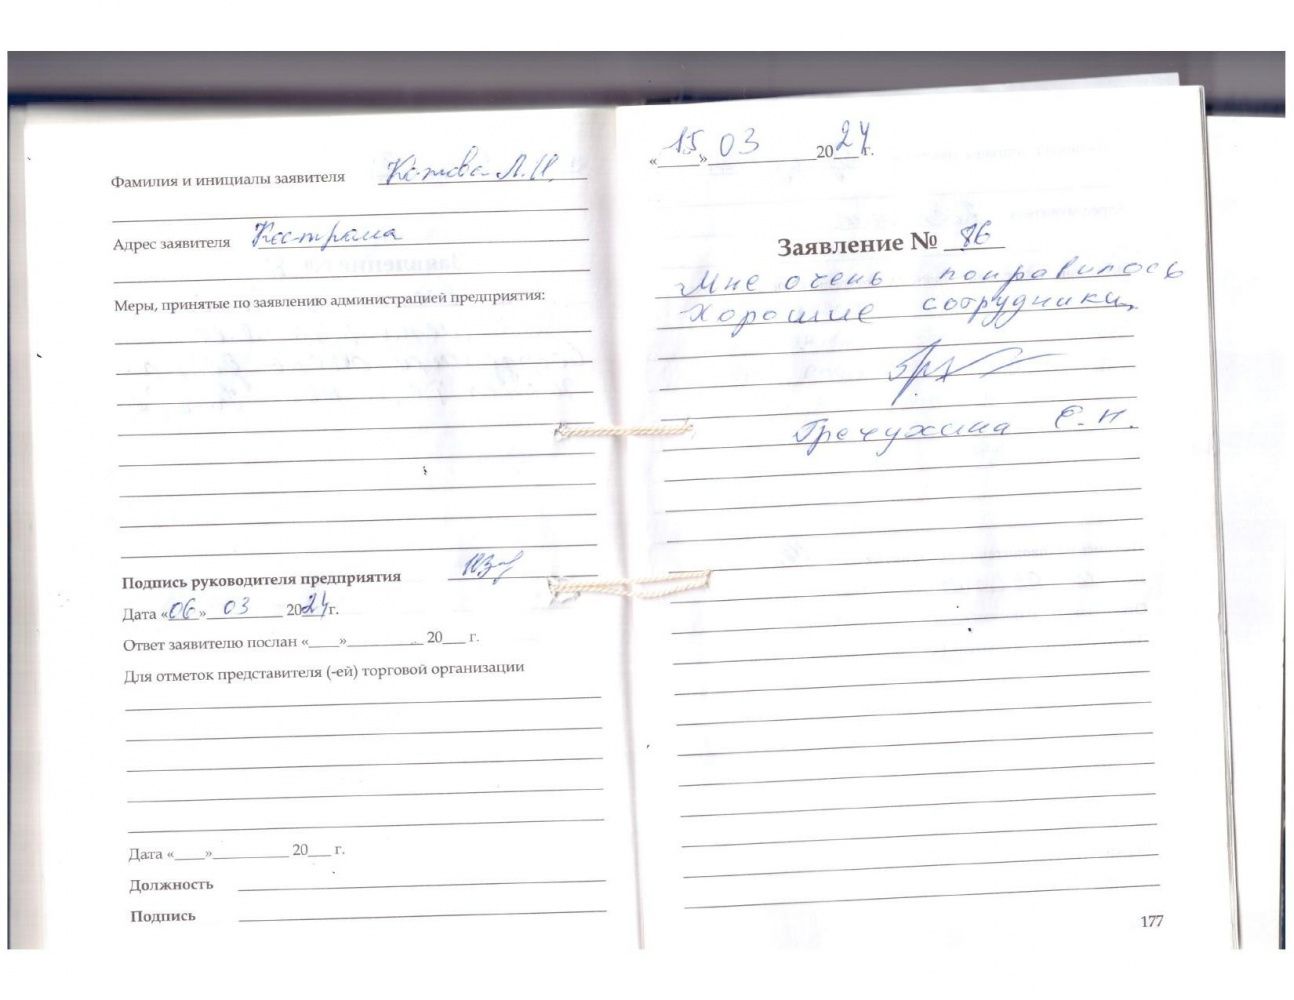 Фамилия и инициалы заявителя
Адрес заявителя Кострома
Меры, принятые по заявлению администрацией предприятия:
Подпись руководителя предприятия
Дата «06» 03 2024г.
Ответ заявителю послан «____»__________ 20___ г.
Для отметок представителя (-ей) торговой организации
Дата «____»__________ 20___ г.
Должность
Подпись
«15» 03 2024г.
Заявление № 86
Мне очень понравилось
Хорошие сотрудники
Гречухина С.Н.
177